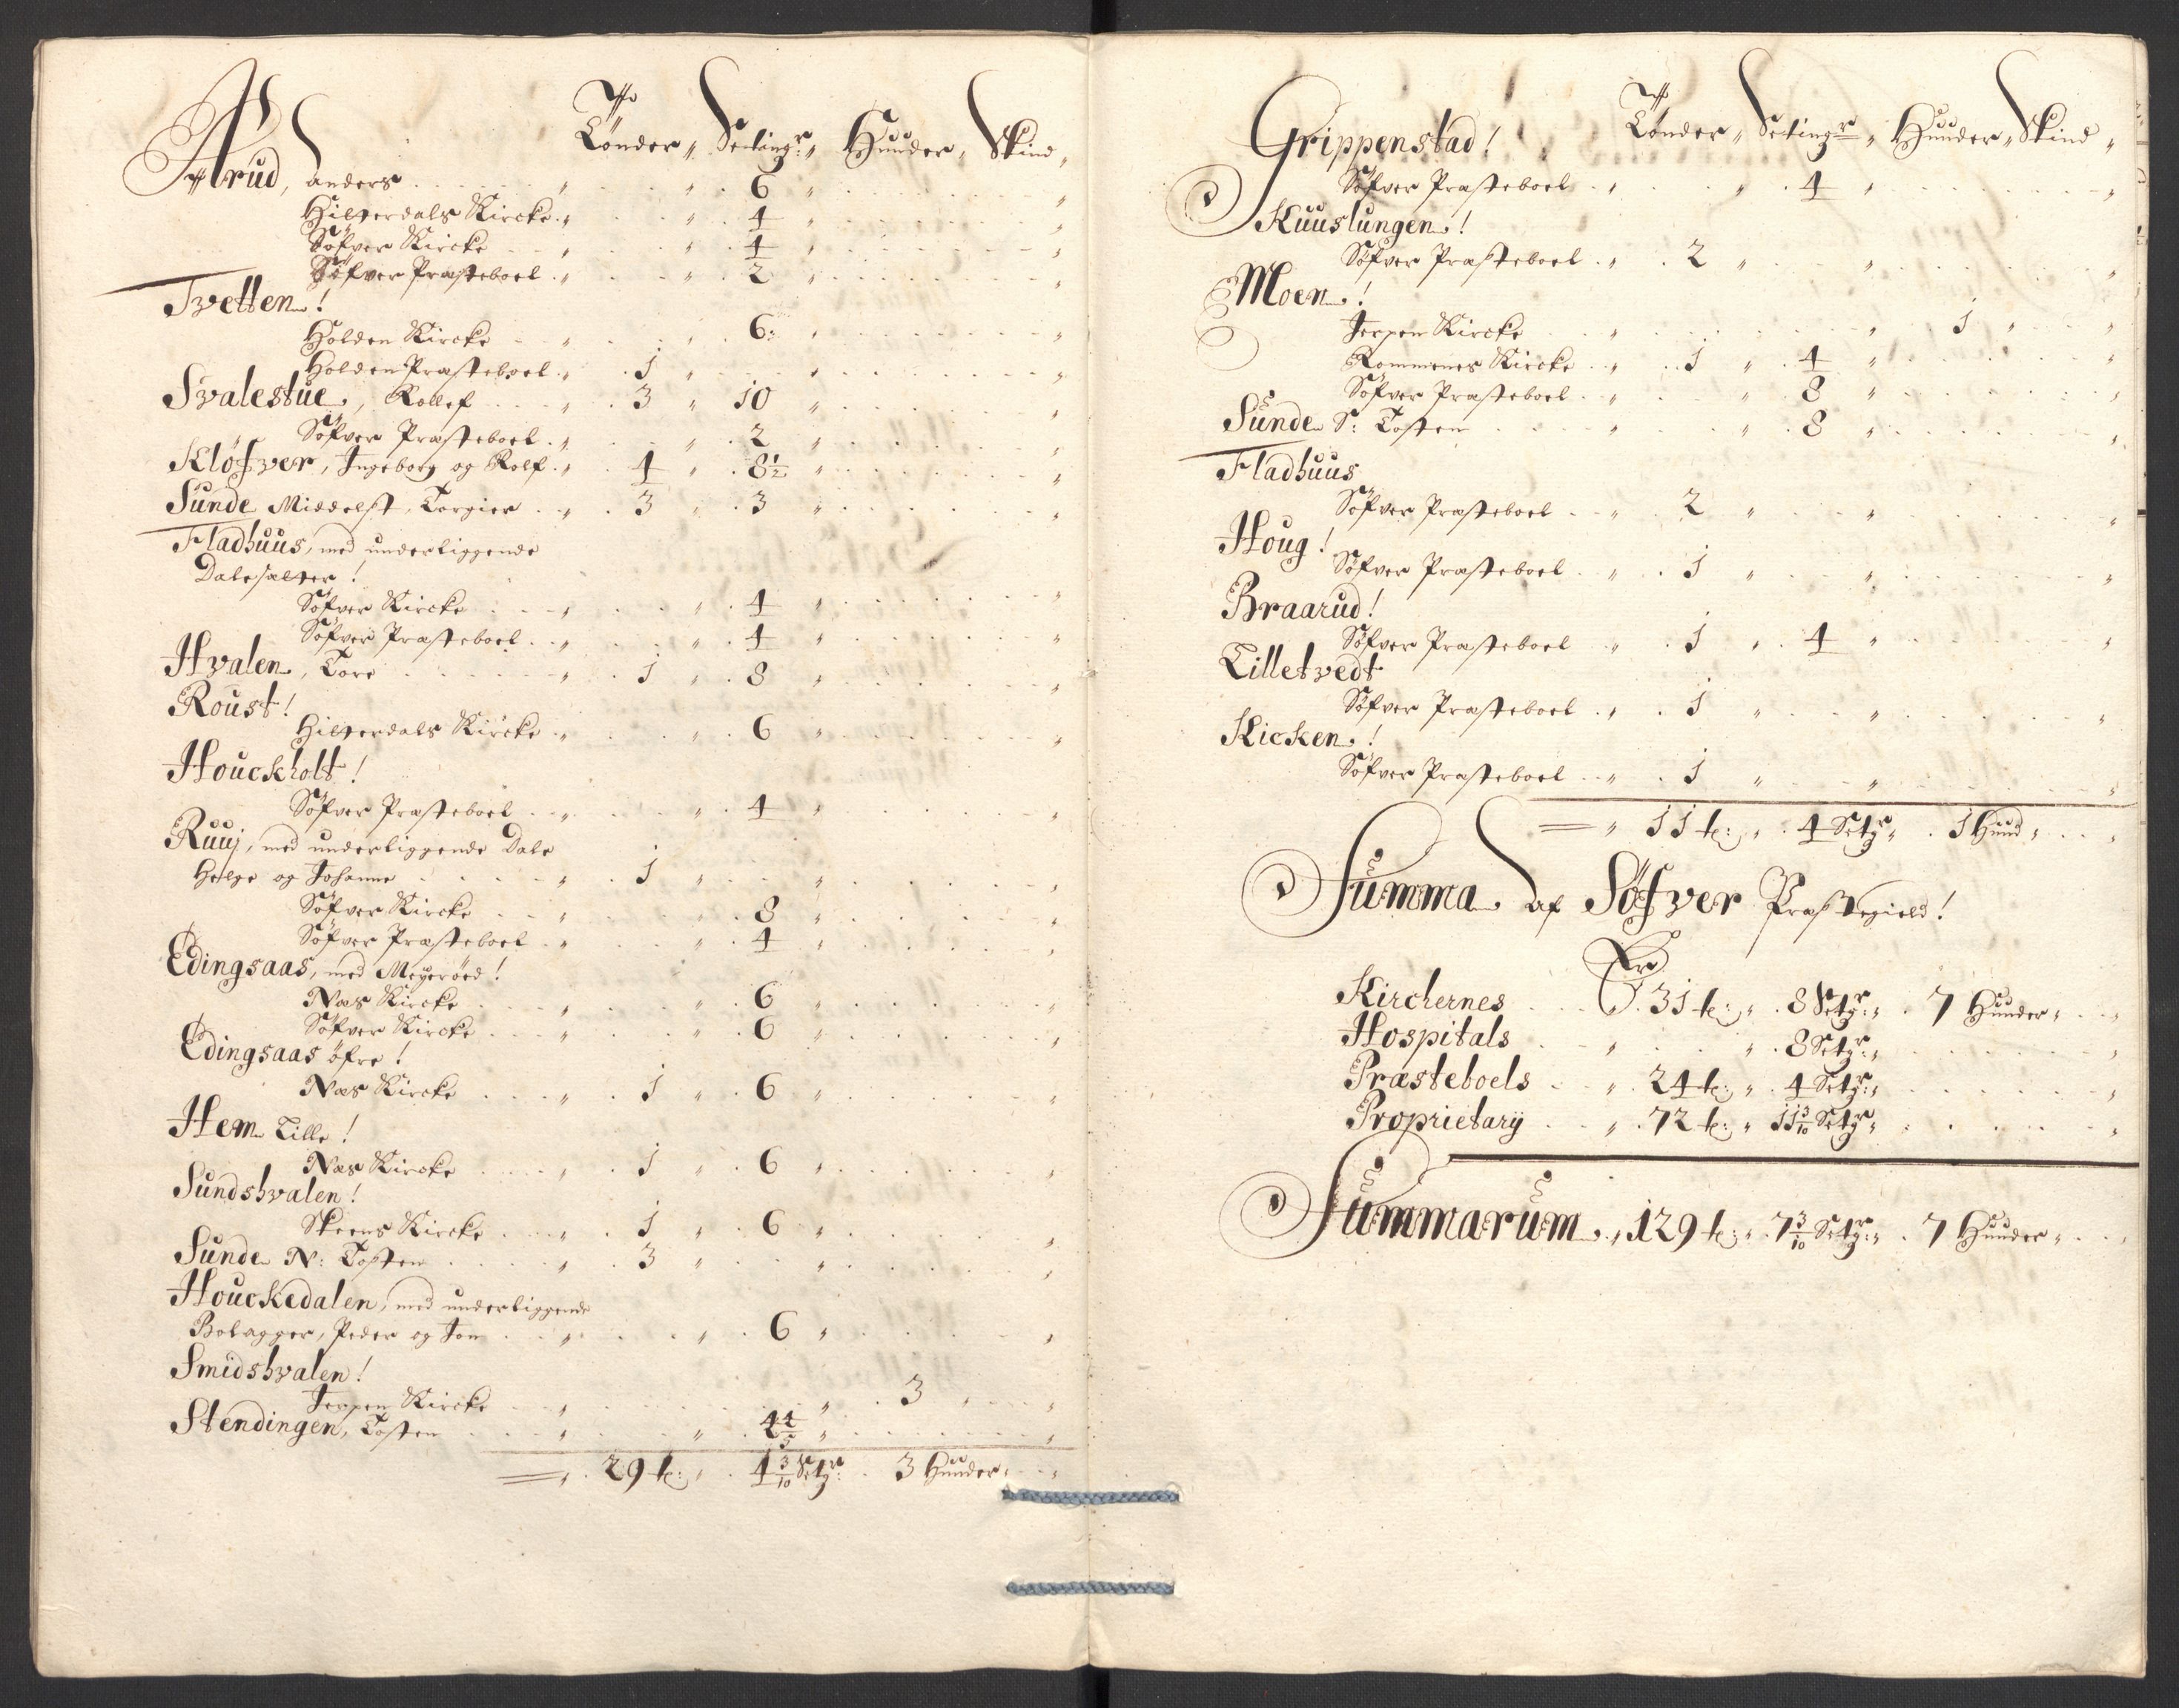 Tønder Setingr Huuder Skind
Aarud, anders 6
Hitterdals Kircke 4
Söfver Kircke 4
Söfver Præsteboel 2
Tvetten!
Holden Kircke 6
Holden Præsteboel 1
Svalestue, Rollef 3 10
Söfver Præsteboel 2
Klöfver, Ingeborg og Rolf 4 8 1/2
Sunde Middelst, Torgier 3 3
Fladhuus, med underliggende
Dalesætter!
Söfver Kircke 4
Söfver Præsteboel 4
Hvalen, Tore 1 8
Roust!
Hitterdals Kircke 6
Houckholt!
Söfver Præsteboel 4
Ruuj, med underliggende Dale
Helge og Johanne 1
Söfver Kircke 8
Söfver Præsteboel 4
Edingsaas, med Meyeröed!
Næs Kircke 6
Söfver Kircke 6
Edingsaas öfre!
Næs Kircke 1 6
Hem Lille!
Næs Kircke 1 6
Sundshvalen!
Skeens Kircke 1 6
Sunde N: Tosten 3
Houckedalen, med underliggende
Bolagger, Peder og Jon 6
Smidshvalen!
Jerpen Kircke 3
Stendingen, Tosten 4 4/5
29 t: 4 3/10 Setgr: 3 Huuder
Tønder Setingr Huuder Skind
Grippenstad!
Söfver Præsteboel 4
Kuuslungen!
Söfver Præsteboel 2
Moen!
Jerpen Kircke 1
Rommenes Kircke 1 4
Söfver Præsteboel 8
Sunde S: Tosten 8
Fladhuus
Söfver Præsteboel 2
Houg!
Söfver Præsteboel 1
Braarud!
Söfver Præsteboel 1 4
Lilletvedt
Söfver Præsteboel 1
Kicken!
Söfver Præsteboel 1
11 t: 4 Setgr 1 Huud
Summa af Söfver Præstegield!
Kirchernes 31 t: 8 Setgr: 7 Huuder
Hospitals 8 Setgr:
Præsteboels 24 t: 4 Setgr:
Proprietarÿ 72 t: 11 3/10 Setgr
Summarum 129 t: 7 3/10 Setgr: 7 Huuder